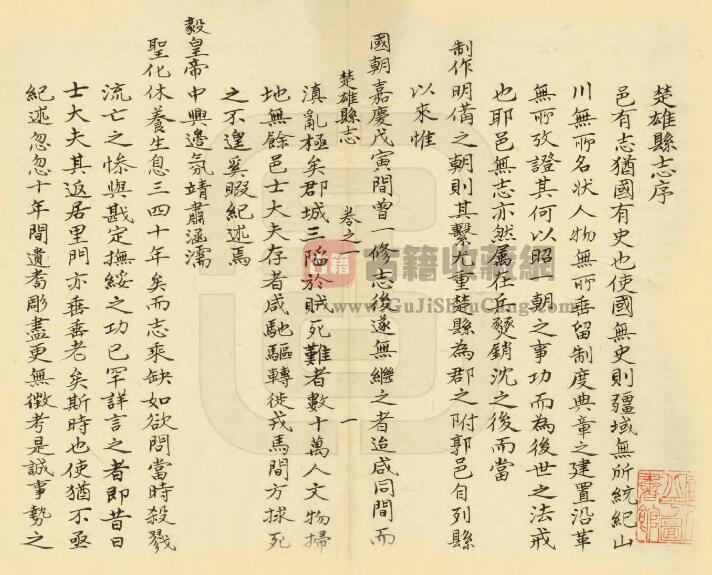 楚雄縣志序
邑有志猶國有史也使國無史則疆域無所統紀山
川無所名狀人物無所垂留制度典章之建置沿革
無所攷證其何以昭一朝之事功而為後世之法戒
也耶邑無志亦然屬在兵燹銷沈之後而當
制作明備之朝則其繫尤重楚縣為郡之附郭邑自列縣
以來惟
國朝嘉慶戊寅間曾一修志後遂無繼之者迨咸同間而
楚雄縣志 卷之一 一
滇亂極矣郡城三陷於賊死難者數十萬人文物掃
地無餘邑士大夫存者咸馳驅轉徙戎馬間方捄死
之不遑奚暇紀述焉
毅皇帝中興邊氛靖肅涵濡
聖化休養生息三四十年矣而志乘缺如欲問當時殺戮
流亡之慘與戡定撫綏之功已罕詳言之者即昔日
士大夫其返居里門亦垂垂老矣斯時也使猶不亟
紀述忽忽十年間遺耈彫盡更無徵考是誠事勢之
古籍 古籍收藏網
www.GuJiShouCang.com